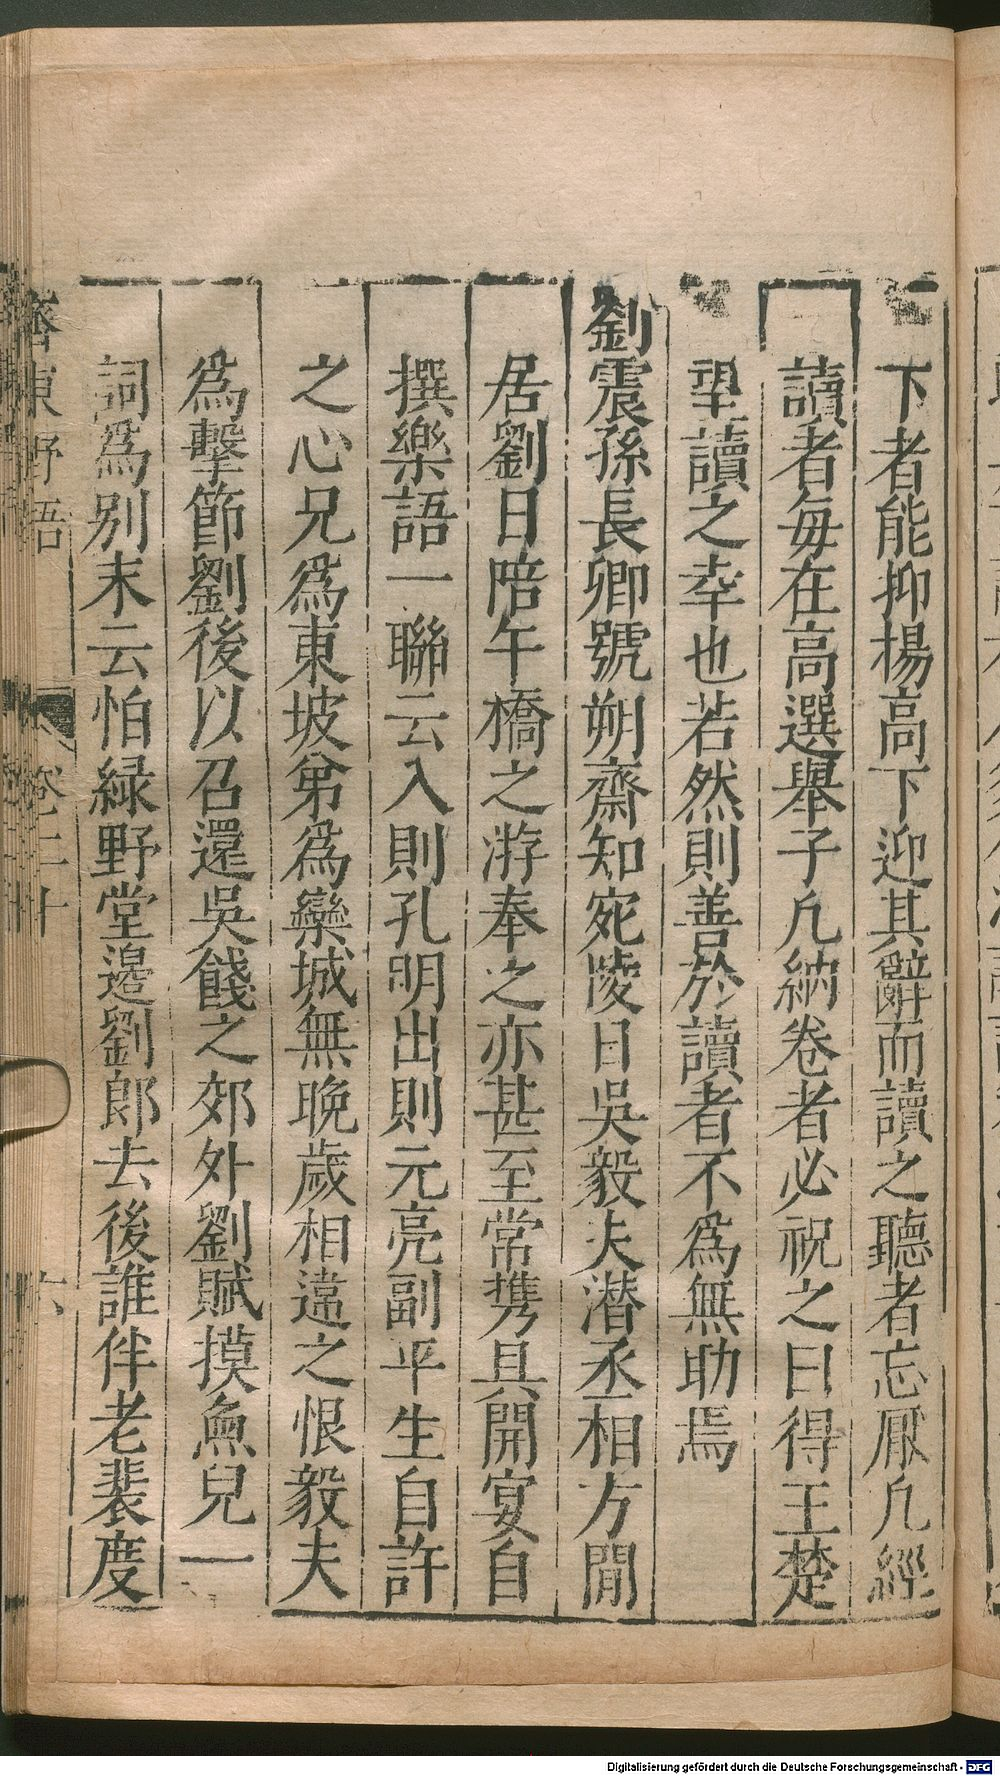 下者能抑揚高下迎其辭而讀之聽者忘厭凡經
讀者每在高選舉子凡納卷者必祝之曰得王楚
望讀之幸也若然則善於讀者不爲無助焉
劉震孫長卿號朔齋知宛陵日吳毅夫潜丞相方閒
居劉日陪午橋之游奉之亦甚至常携具開宴自
撰樂語一聯云入則孔明出則元亮副平生自許
之心兄爲東坡弟爲欒城無晚歲相違之恨毅夫
爲擊節劉後以召還吳餞之郊外劉賦摸魚兒一
詞爲別末云怕緑野堂邊劉郎去後誰伴老裴度
齊東野語 卷二十 六
Digitalisierung gefördert durch die Deutsche Forschungsgemeinschaft - DFG